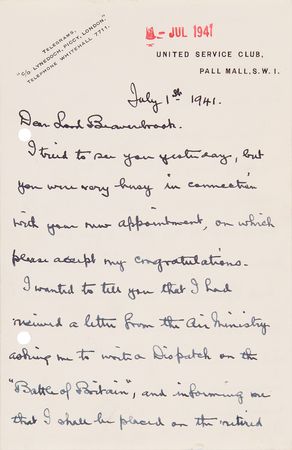 TELEGRAMS,
"C/O LYNEDOCH, PICCY, LONDON."
TELEPHONE WHITEHALL 7711.
- JUL 1941
UNITED SERVICE CLUB,
PALL MALL, S.W.1.
July 1st 1941.
Dear Lord Beaverbrook.
I tried to see you yesterday, but
you were very busy in connection
with your new appointment, on which
please accept my congratulations.
I wanted to tell you that I had
received a letter from the Air Ministry
asking me to write a Dispatch on the
"Battle of Britain", and informing me
that I shall be placed on the retired